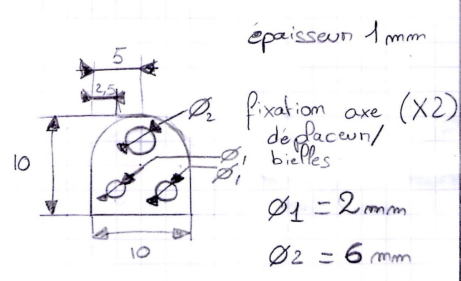 épaisseur 1 mm
5
2,5
Ø2
fixation axe (X2)
déplaceur/
bielles
10
Ø1
Ø1
Ø1 = 2 mm
Ø2 = 6 mm
10